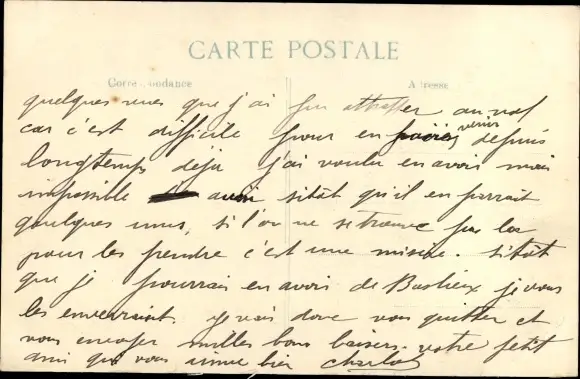 CARTE POSTALE
Corre ondance A resse
quelques vues que j'ai pu attraper au vol
car c'est difficile pour en venir depuis
longtemps déja j'ai voulu en avoir mais
impossible aussi sitôt qu'il en parrait
quelques unes, si l'on ne se trouve pas la
pour les prendre c'est une misère. sitôt
que je pourrais en avoir de Bastieux je vous
les enverraint. je vais donc vous quitter et
vous envoyer milles bons baisers. votre petit
ami qui vous aime bien Charlot